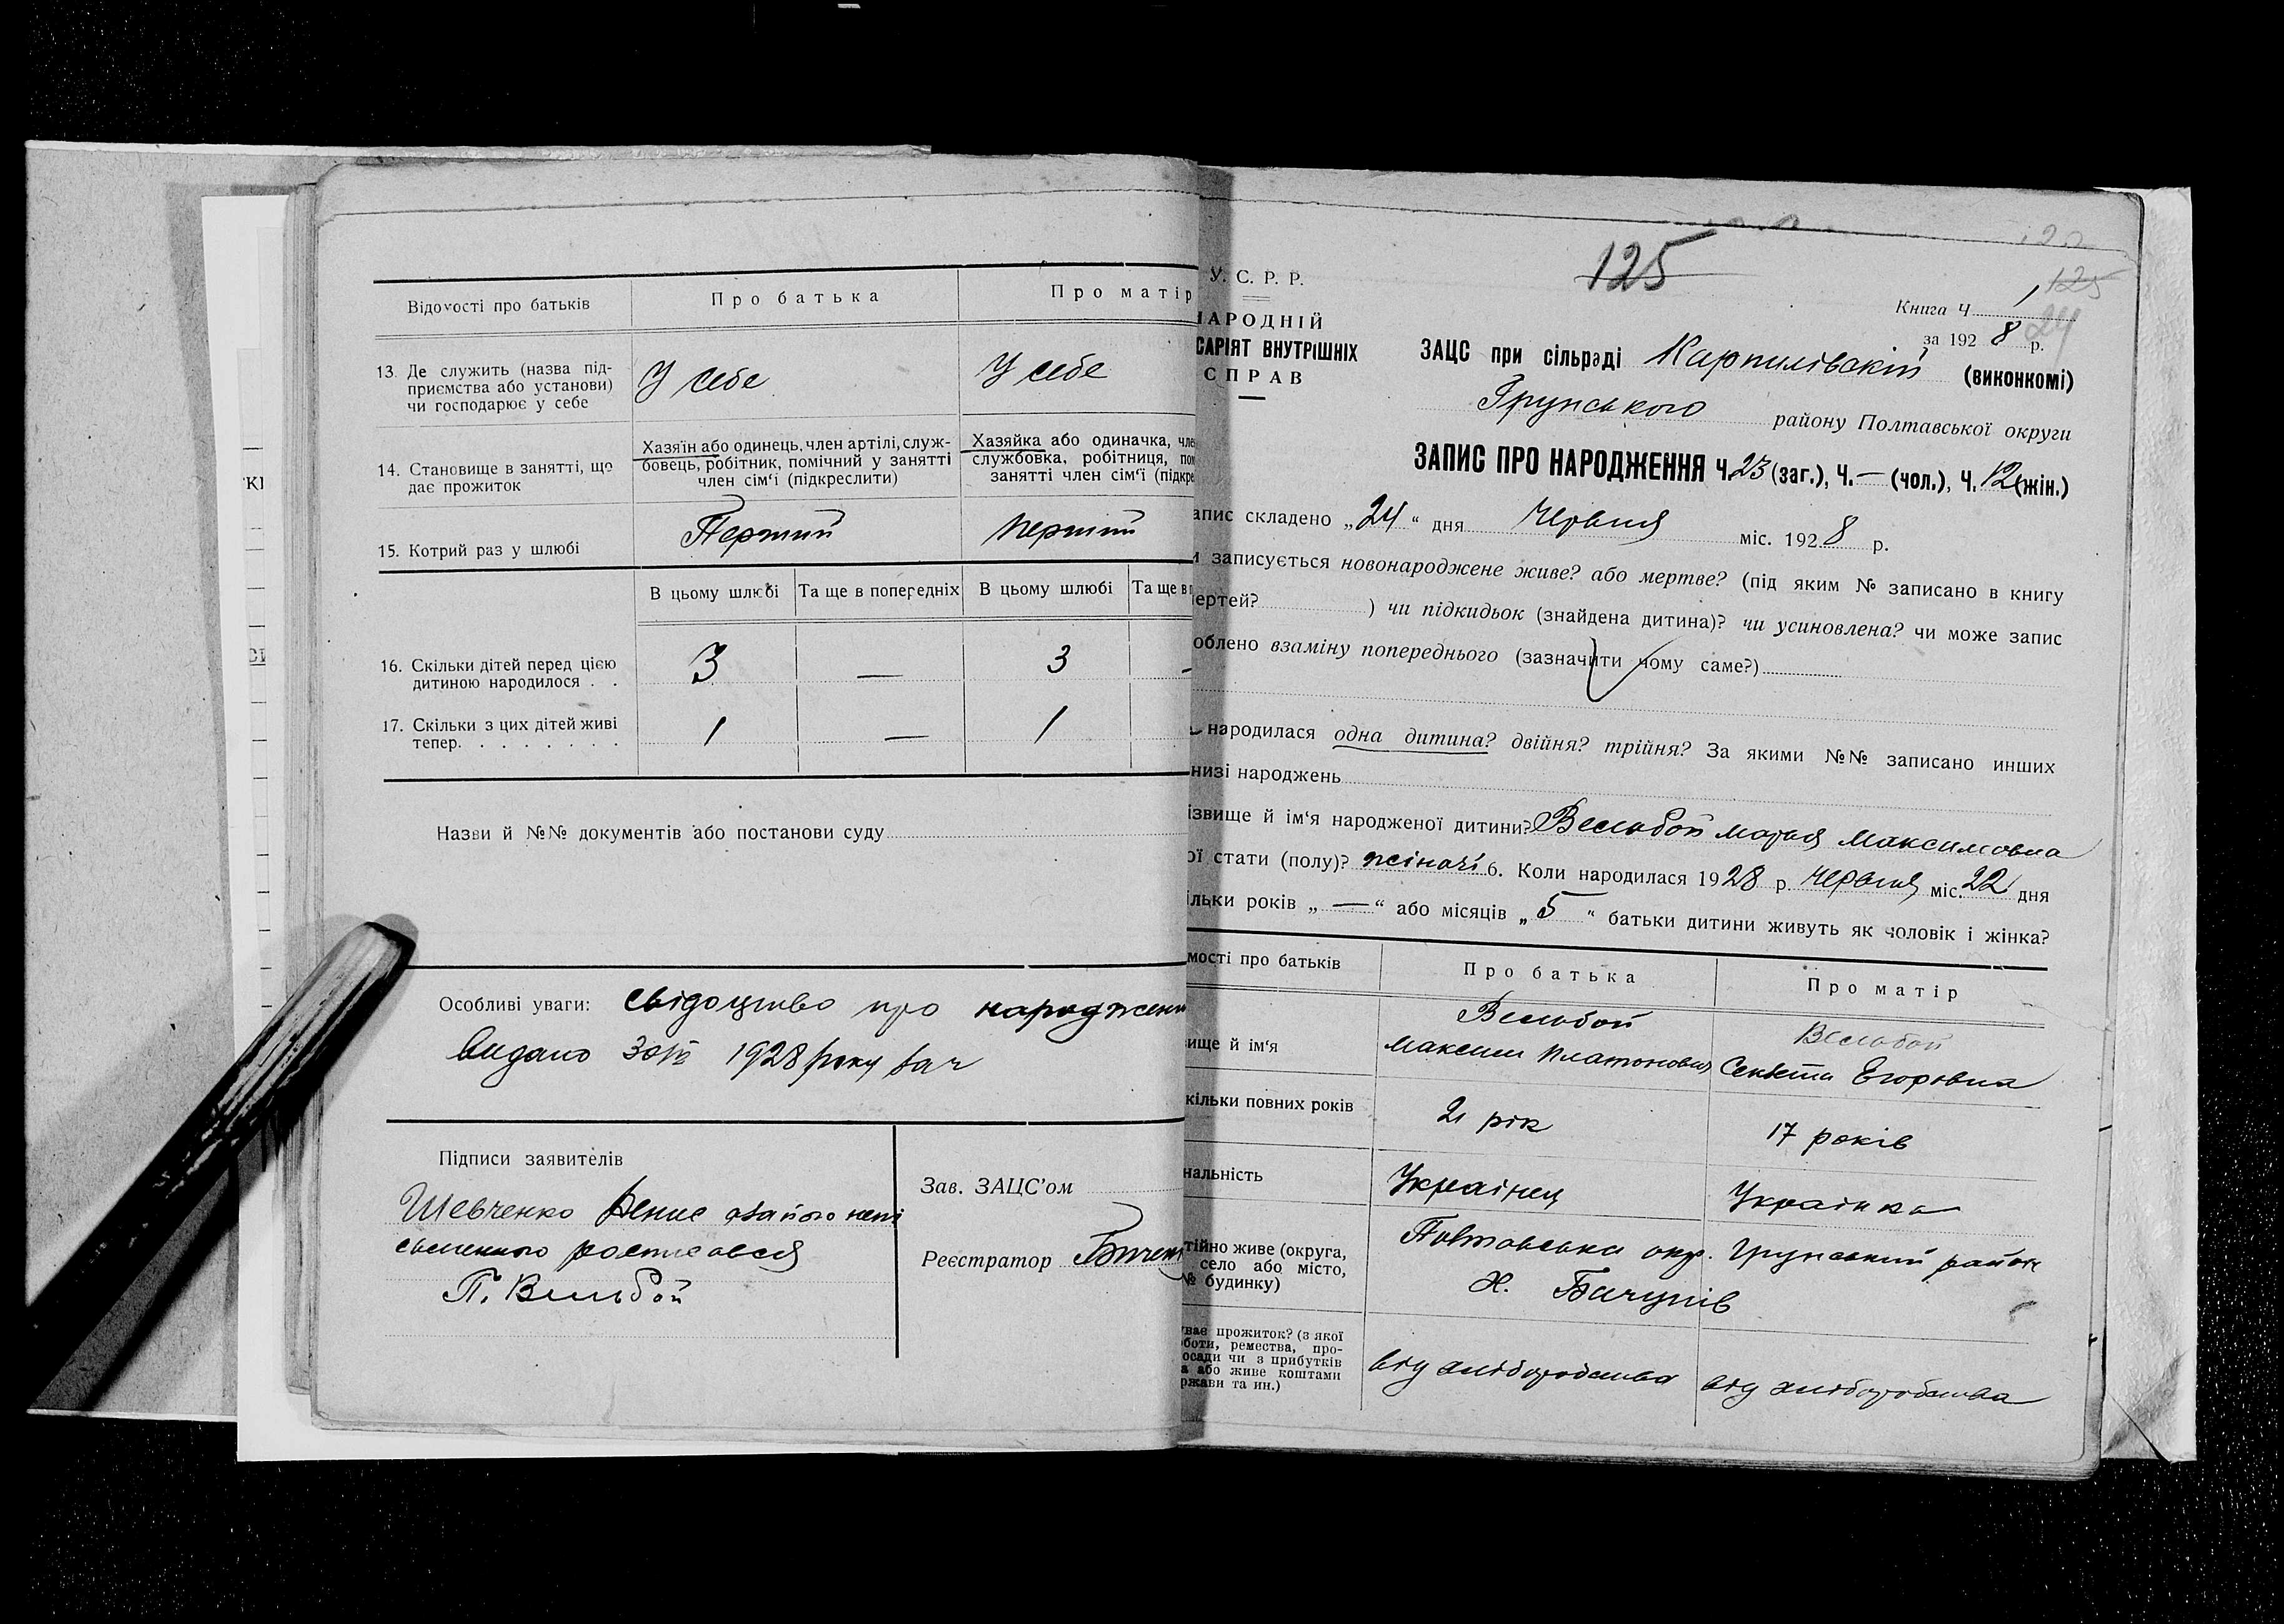 Відомості про батьків
Про батька
Про матір
13. Де служить (назва під-
приємства або установи)
чи господарює у себе
У себе
У себе
14. Становище в занятті, що
дає прожиток
Хазяїн або одинець, член артілі, служ-
бовець, робітник, помічний у занятті
член сім‘ї (підкреслити)
Хазяйка або одиначка, чле
службовка, робітниця, пом
занятті член сім‘ї (підкре
15. Котрий раз у шлюбі
Перший
перший
В цьому шлюбі
Та ще в попередніх
В цьому шлюбі
Та ще в п
16. Скільки дітей перед цією
дитиною народилося . .
3
—
3
-
17. Скільки з цих дітей живі
тепер. . . . . . . .
1
—
1
Назви й №№ документів або постанови суду
Особливі уваги: свідоцтво про народжени
видано 1928 року
Підписи заявителів
Шевченко Денис
росписався
П. Вельбой
Зав. ЗАЦС’ом
Реєстратор
125
125
24
У. С. Р. Р.
НАРОДНІЙ
САРІЯТ ВНУТРІШНІХ
СПРАВ
Книга Ч 1
за 1928 р.
ЗАЦС при сільраді Карпилівскій (виконкомі)
Грунського району Полтавської округи
ЗАПИС ПРО НАРОДЖЕННЯ Ч. 23 (заг.), Ч. — (чол.), Ч. 12 (жін.)
апис складено „24“ дня червня міс. 1928 р.
и записується новонароджене живе? або мертве? (під яким № записано в книгу
ертей? ) чи підкидьок (знайдена дитина)? чи усиновлена? чи може запис
облено взаміну попереднього (зазначити чому саме?)
народилася одна дитина? двійня? трійня? За якими №№ записано инших
низі народжень
ізвище й ім‘я народженої дитини? Вельбой Марія Максимовна
ої стати (полу)? жіночі 6. Коли народилася 1928 р. червня міс. 22 дня
ільки років „—“ або місяців „5“ батьки дитини живуть як чоловік і жінка?
мості про батьків
Про батька
Про матір
вище й ім‘я
Вельбой
Максим Платонович
Вельбой
Секлета Егоровна
кільки повних років
21 рік
17 років
нальність
Українец
Українка
тійно живе (округа,
село або місто,
№ будинку)
Полтавська окр. Грунський район
Х. Бачуців
уває прожиток? (з якої
боти, ремества, про-
осади чи з прибутків
а або живе коштами
ржави та ин.)
від хліборобства
від хліборобства